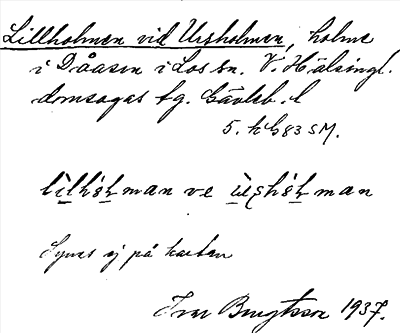 Lillholmen vid Ursholmen, holme
i Dåasen i Los sn. V. Hälsingl.
domsagas tg. Gävleb. l
5. h G83 SM.
man ve man
Synes ej på kartan
Ivar Bengtsson 1937.